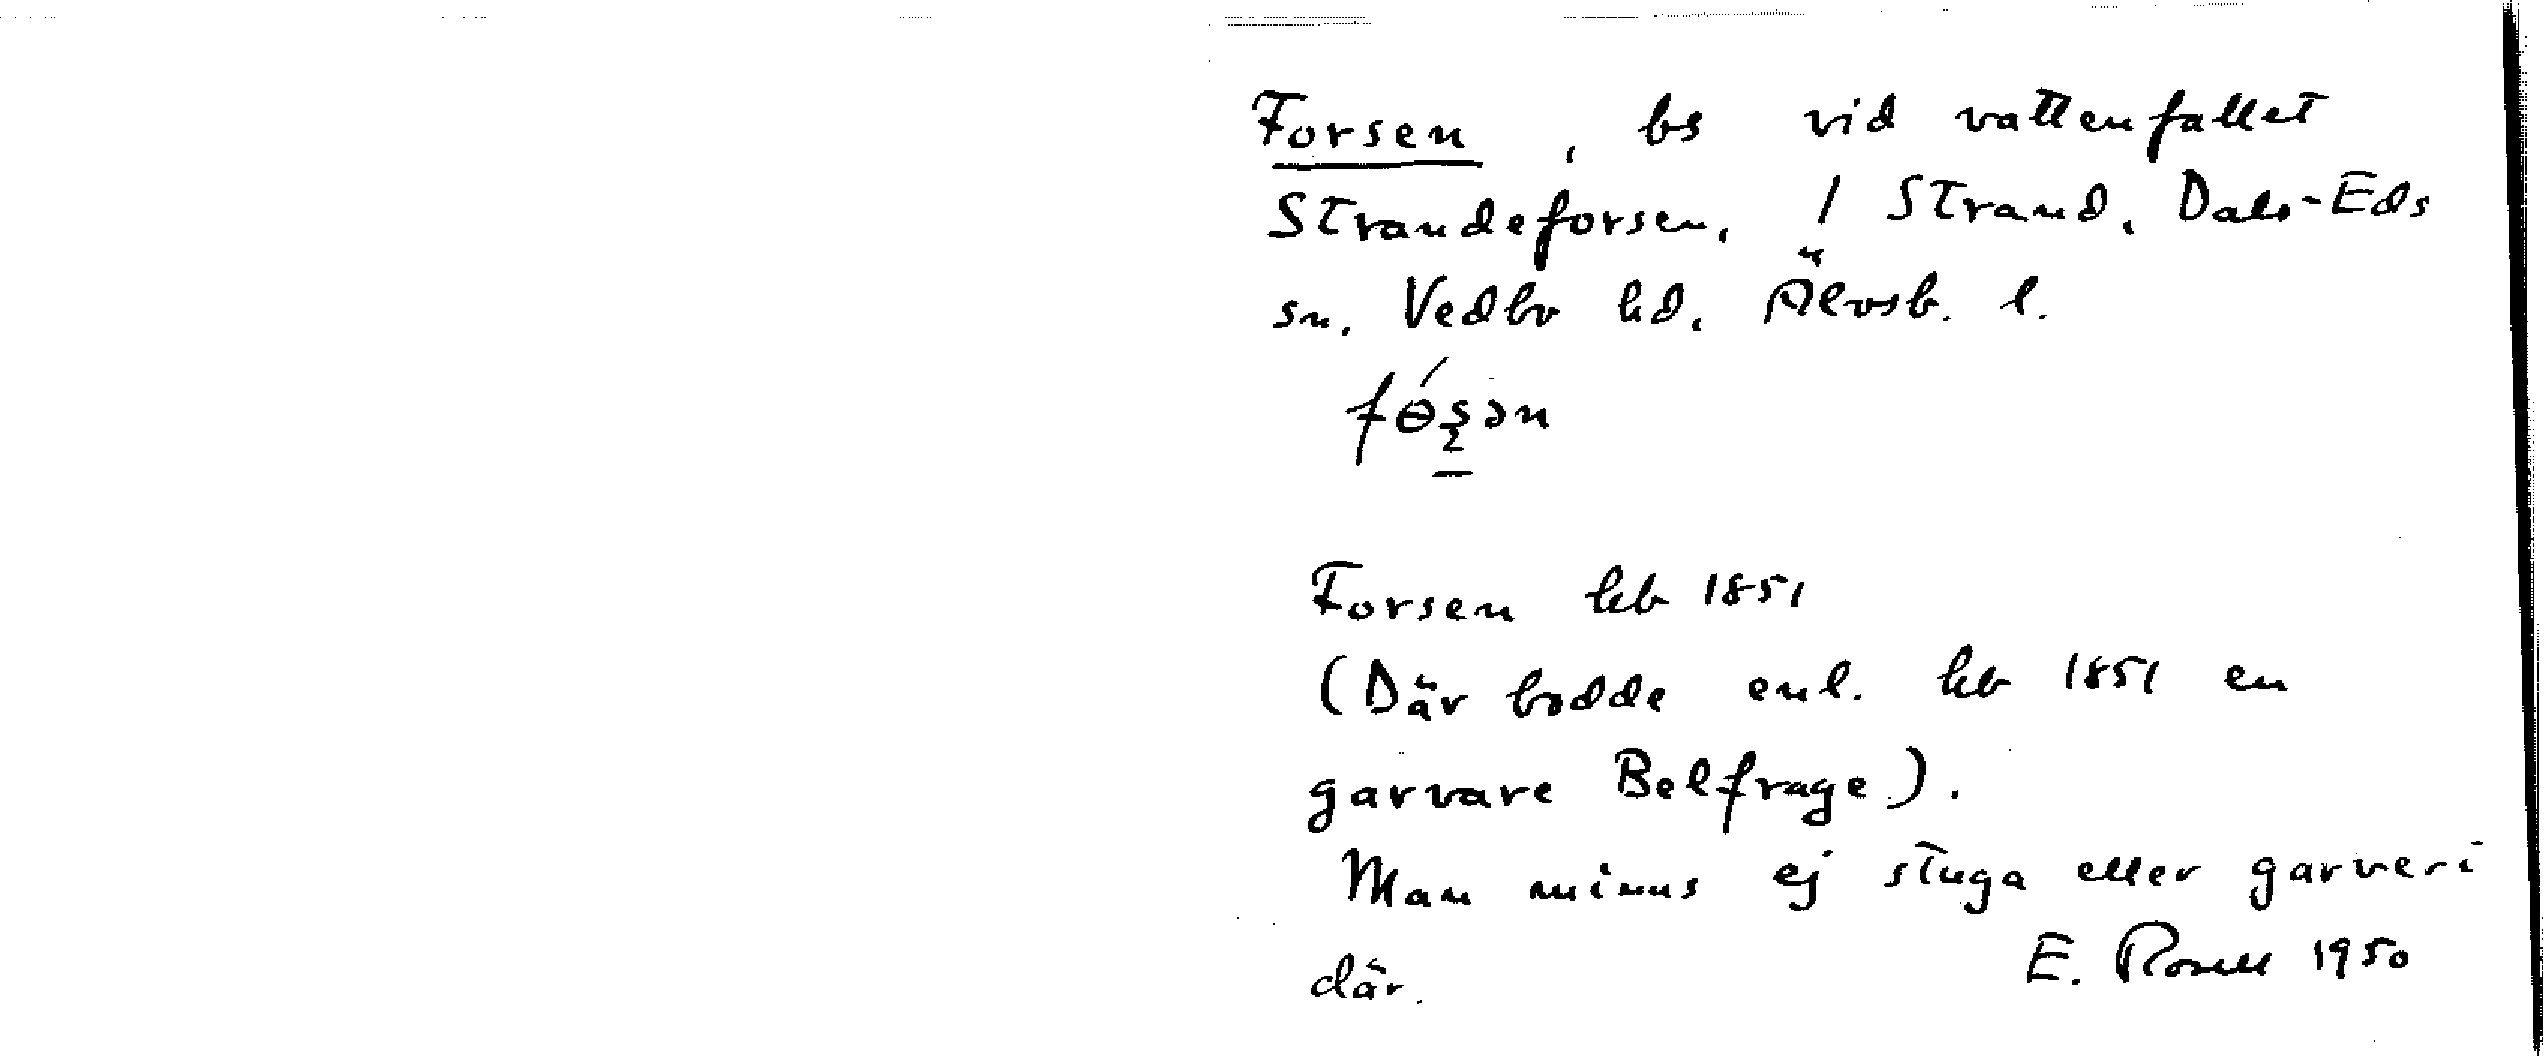 Forsen, bs vid vattenfallet
Strandeforsen, / Strand, Dals-Eds
sn, Vedbo hd, Älvsb. l.
Forsen hb 1851
(Där bodde enl. hb 1851 en
garvare Belfrage).
Man minns ej stuga eller garveri
där.
E. Rosell 1950